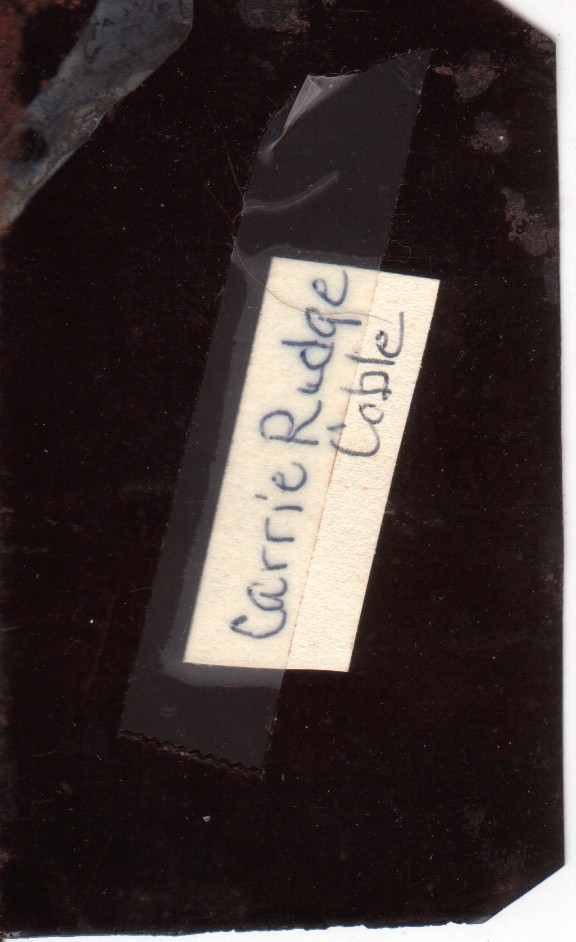 Carrie Rudge
Coble